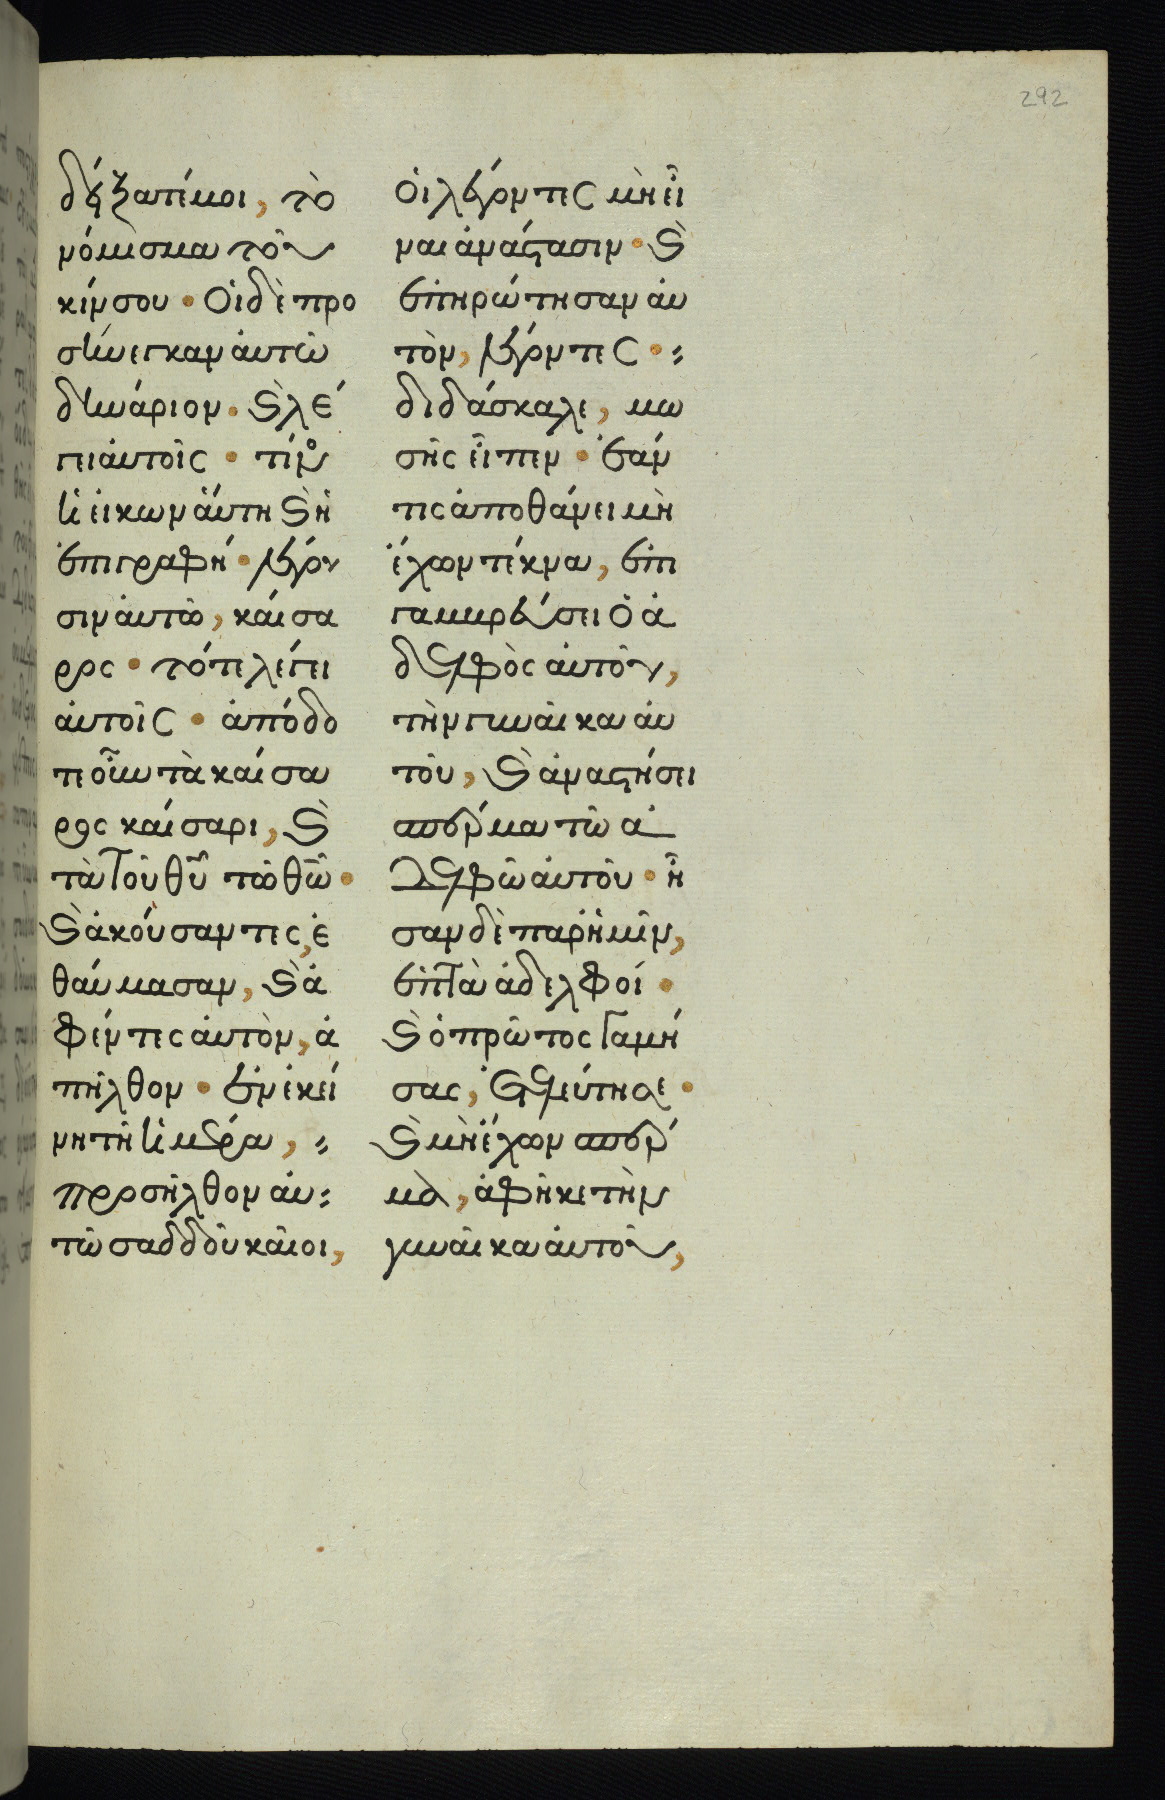 292
δείξατέ μοι, τὸ
νόμισμα τοῦ
κίνσου · Οἱ δὲ προ
σήνεγκαν αὐτῶ
δηνάριον · Ϗ λέ
γει αὐτοῖς · τίνος
ἡ εἰκων ἄυτη ϗ ἡ
ἐπιγραφή · λέγου
σιν αὐτῶ, καίσα
ρος · τότε λέγει
ἀυτοῖς · ἀπόδο
τε οὖν τὰ καίσα
ρος καίσαρι, Ϗ
τὰ τοῦ θῦ τῶ θῶ ·
Ϗ ἀκούσαντες, ἐ
θαύμασαν, Ϗ ἀ
φέντες ἀυτὸν, ἀ
πῆλθον · ἐν ἐκεί
νη τῆ ἡμέρα, :
προσῆλθον ἀυ:
τῶ σαδδουκαῖοι,
Οἱ λέγοντες μὴ εἶ
ναι ἀνάστασιν · Ϗ
ἐπηρώτησαν ἀυ
τὸν, λέγοντες · :
διδάσκαλε, μω
σῆς εἶπεν · ἐάν
τις ἀποθάνει μὴ
ἔχων τέκνα, ἐπι
γαμβρεύσει Ὁ ἀ
δελφὸς ἀυτοῦ,
τὴν γυναῖκα ἀυ
τοῦ, Ϗ ἀναστήσει
σπέρμα τῶ ἀ
δελφῶ ἀυτοῦ · ἦ
σαν δὲ παρ' ἡμῖν,
ἑπτὰ ἀδελφοί ·
Ϗ ὁ πρῶτος γαμή
σας, ἐτελεύτησε ·
Ϗ μὴ ἔχων σπέρ
μα, ἀφῆκε τὴν
γυναῖκα ἀυτοῦ,